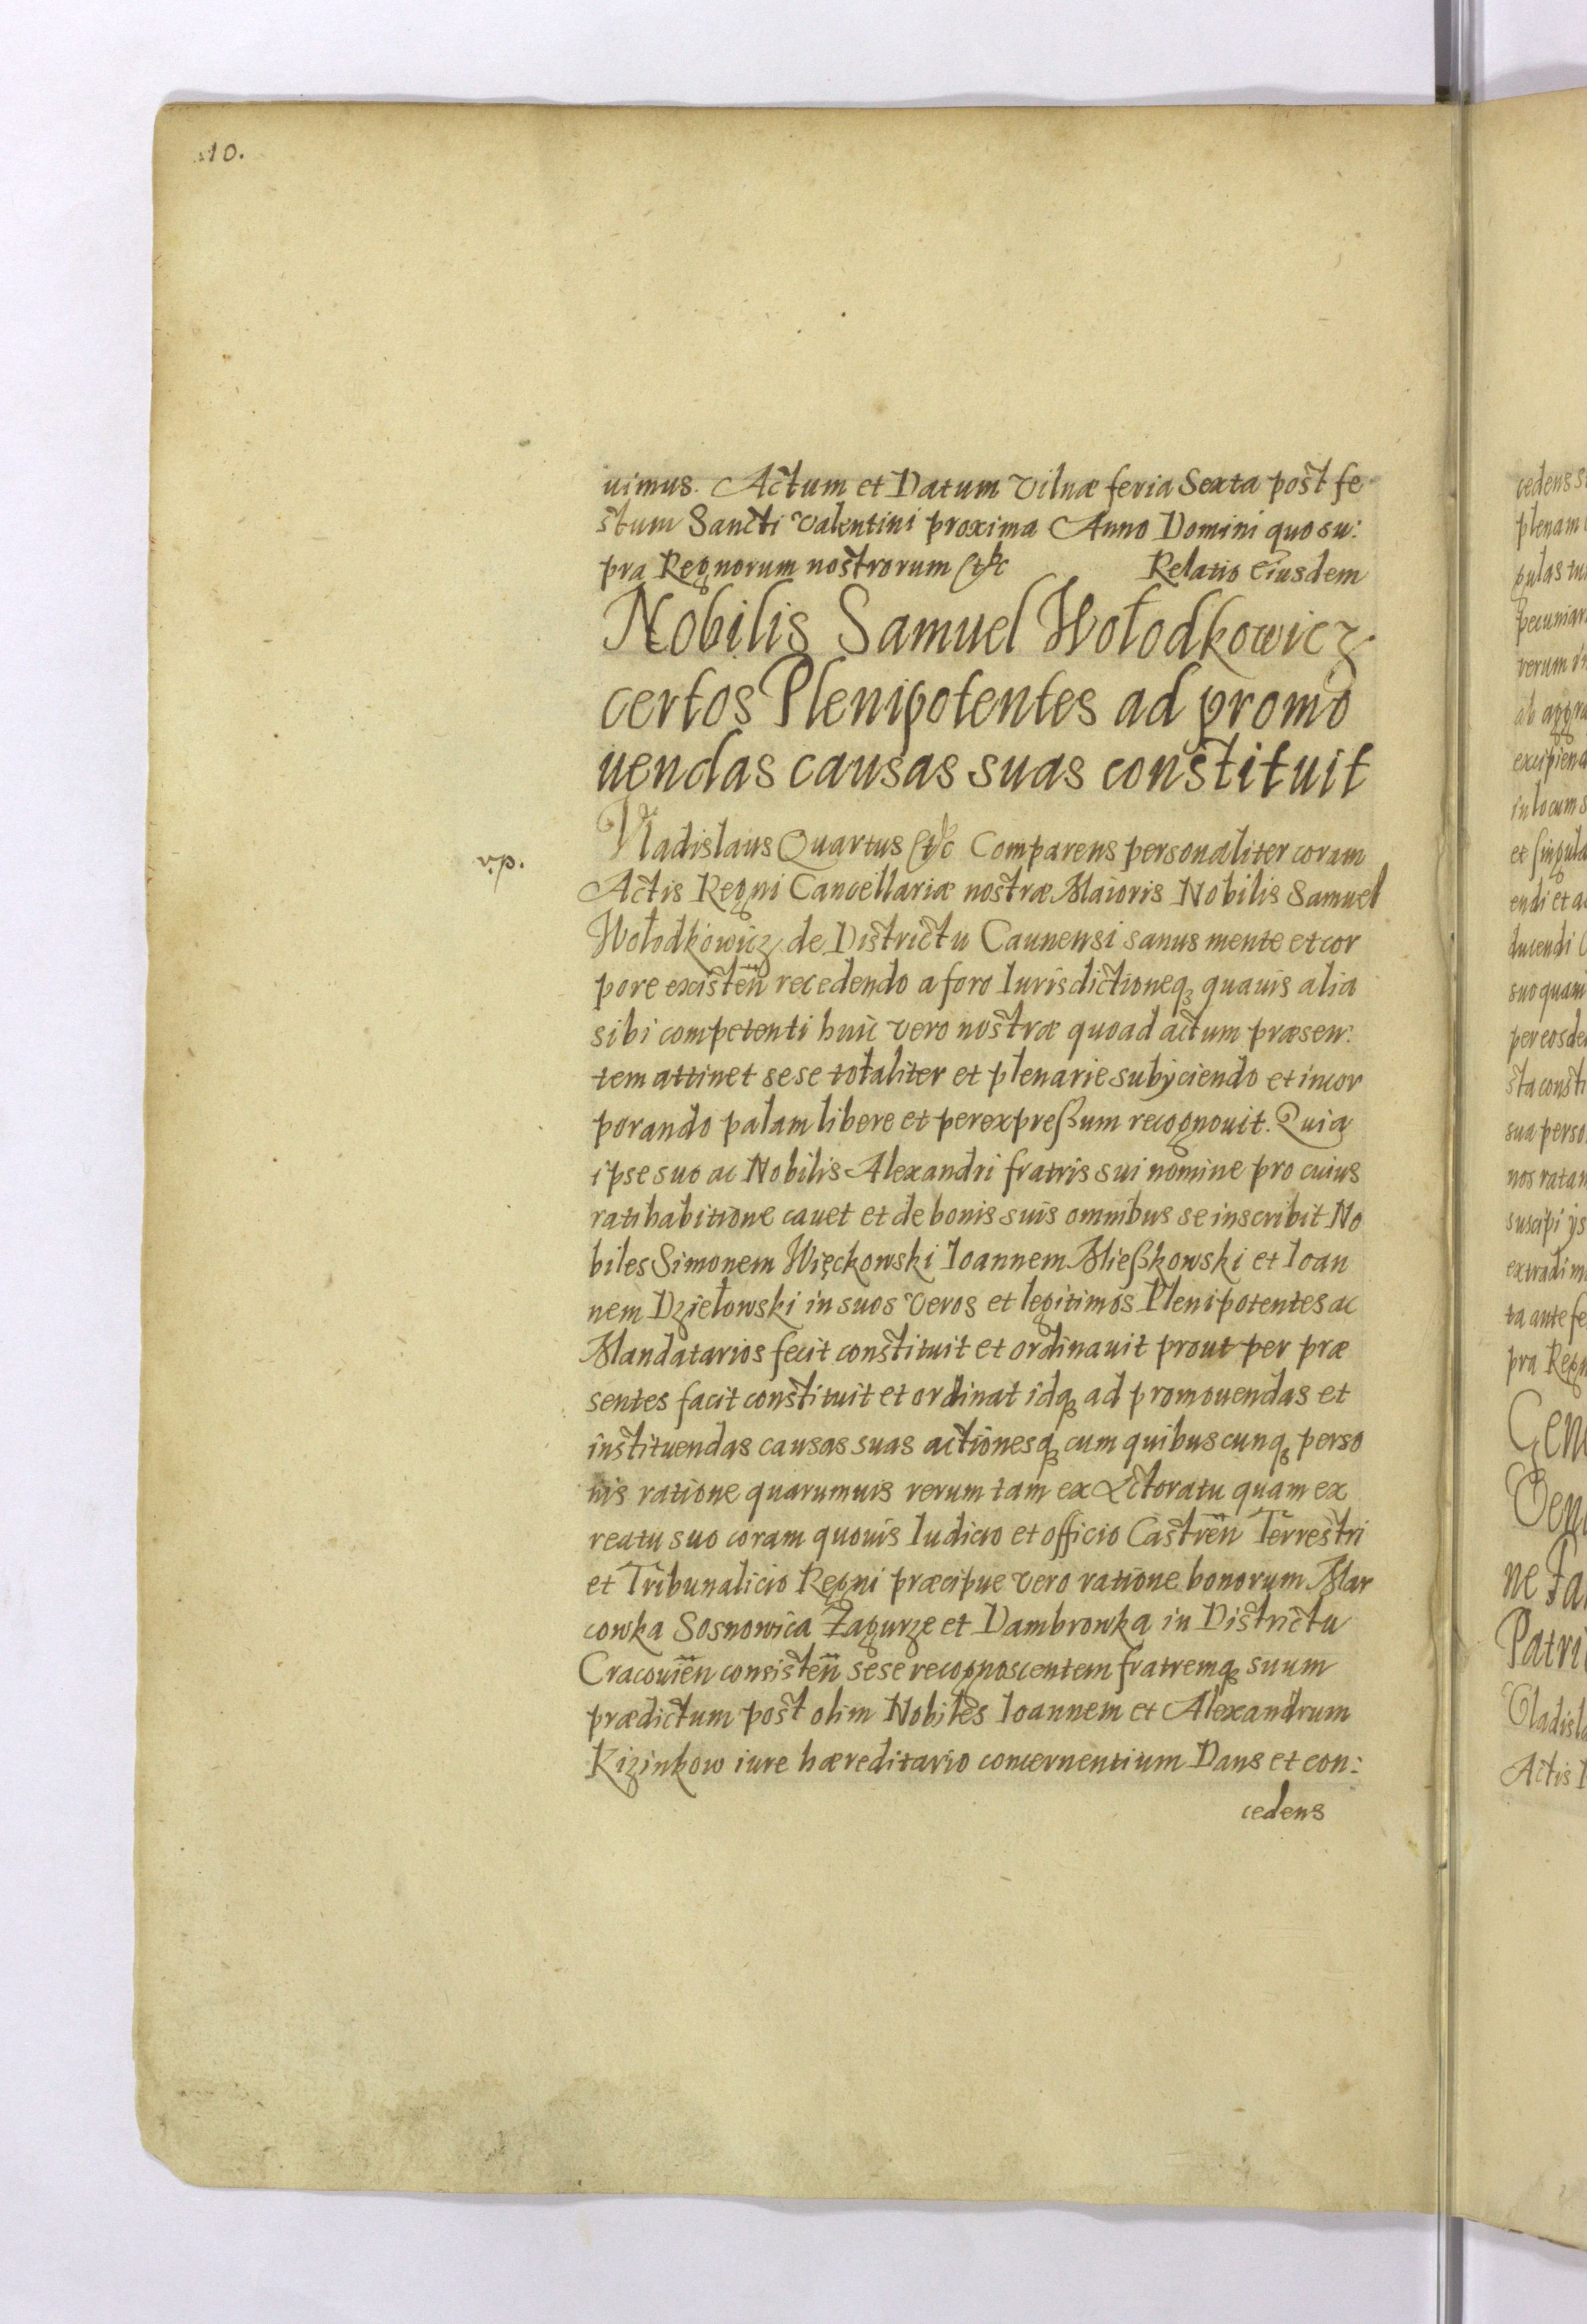 10.
uimus. Actum et Datum Vilnæ feria Sexta post fe
stum Sancti Valentini proxima Anno Domini quo su:
pra Regnorum nostrorum etc Relatio Eiusdem
Nobilis Samuel Wołodkowicz
certos Plenipotentes ad promo
uendas causas suas constituit
Vladislaus Quartus etc Comparens personaliter coram
v.p.
Actis Regni Cancellariæ nostræ Maioris Nobilis Samuel
Wołodkowicz de Districtu Caunensi sanus mente et cor
pore existen̄ recedendo a foro Iurisdictioneq̢ quauis alia
sibi competenti huic vero nostræ quoad actum præsen:
tem attinet sese totaliter et plenarie subijciendo et incor
porando palam libere et per expreßum recognouit. Quia
ipse suo ac Nobilis Alexandri fratris sui nomine pro cuius
ratihabitione cauet et de bonis suis omnibus se inscribit No
biles Simonem Więckowski Ioannem Mießkowski et Ioan
nem Dziełowski in suos Veros et legitimos Plenipotentes ac
Mandatarios fecit constituit et ordinauit prout per præ
sentes facit constituit et ordinat idq̢ ad promouendas et
instituendas causas suas actionesq̢ cum quibuscunq̢ perso
nis ratione quarumuis rerum tam ex Actoratu quam ex
reatu suo coram quouis Iudicio et officio Castren̄ Terrestri
et Tribunalicio Regni præcipue vero ratione bonorum Mar
cowka Sosnowica Zagurze et Dambrowka in Districtu
Cracouien̄ consisten̄ sese recognoscentem fratremq̢ suum
prædictum post olim Nobiles Ioannem et Alexandrum
Kizinkow iure hæreditario concernentium Dans et con:
cedens
cedens
plenam
pulas
pecuniar
verum
ab aggra
excipiend
in locum s
et singula
endi et a
ducendi
suo quam
per eosde
sta consti
sua perso
nos ratam
suscipi ijs
extradi
ta ante fe
pra Regn
Gen
ne
Patri
Vladisla
Actis